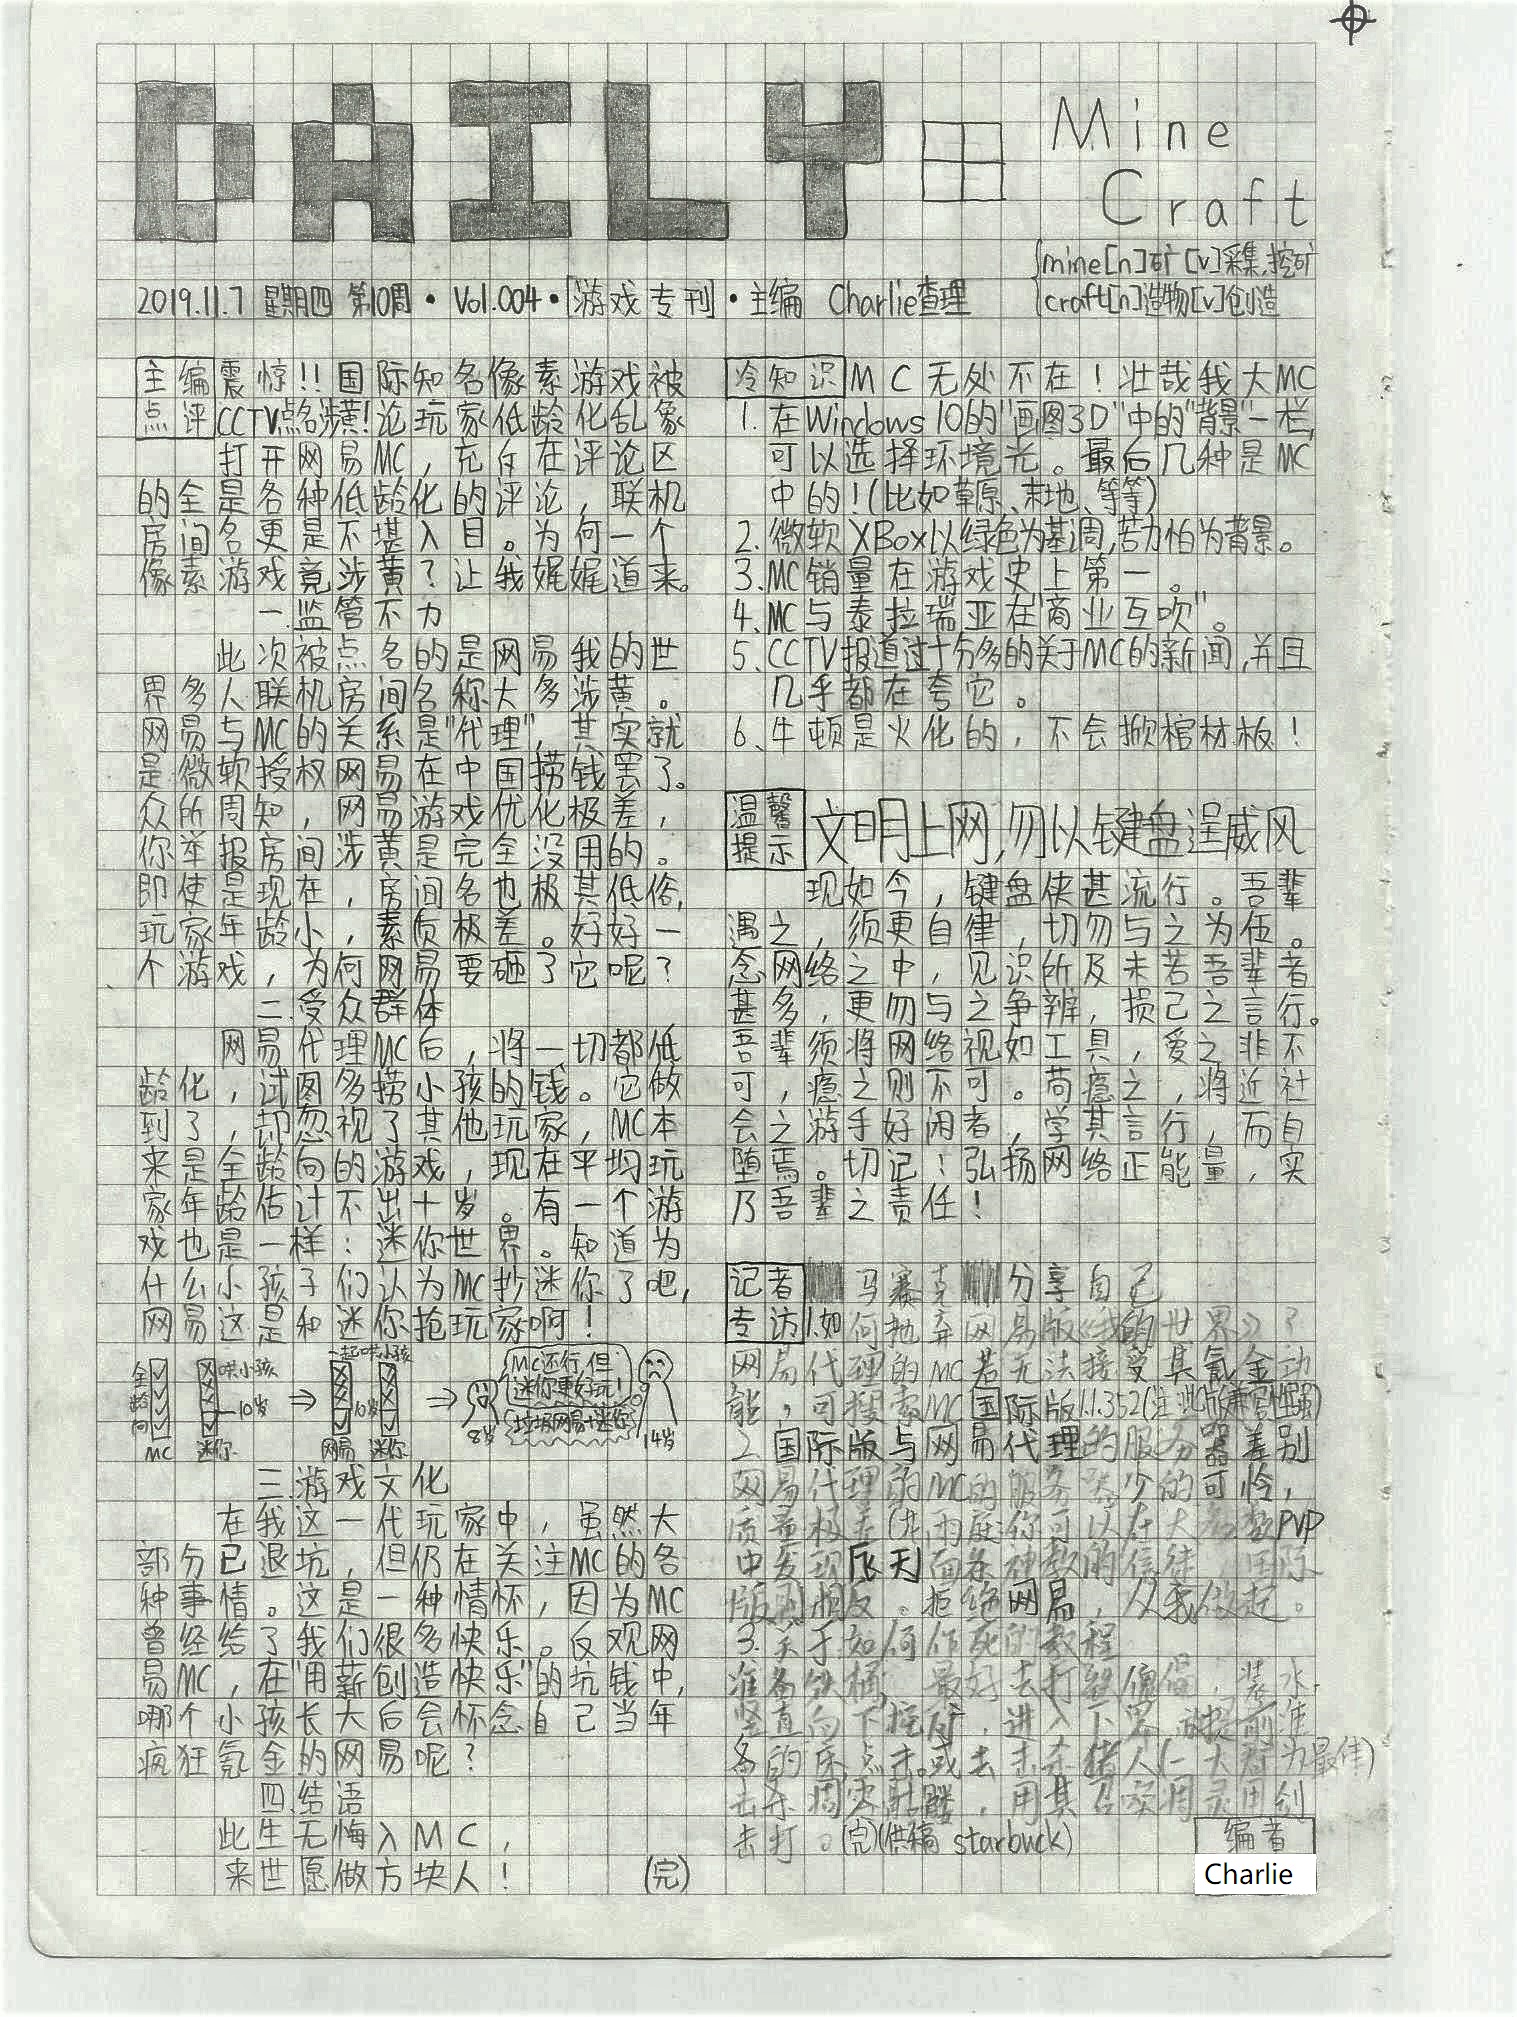 DAILY
Mine
Craft
mine[n]矿[v]采集,挖矿
craft[n]造物[v]创造
2019.11.7 星期四 第10周·Vol.004·[游戏专刊]·主编 Charlie查理
主编
点评
震惊!!国际知名像素游戏被
CCTV点名涉黄!论玩家低龄化乱象
打开网易MC,充斥在评论区
的全是各种低龄化的评论,联机
房间名更是不堪入目。为何一个
像素游戏竟涉黄?让我娓娓道来。
一.监管不力
此次被点名的是网易我的世
界多人联机房间名称大多涉黄。
网易与MC的关系是"代理",其实就
是微软授权网易在中国捞钱罢了。
众所周知,网易游戏优化极差,
你举报房间涉黄是完全没用的。
即使是现在,房间名也极其低俗,
玩家年龄小,素质极差。好好一
个游戏,为何网易要砸了它呢?
二.受众群体
网易代理MC后,将一切都低
龄化,试图多捞小孩的钱。它做
到了,却忽视了其他玩家,MC本
来是全龄向的游戏,现在平均玩
家年龄估计不出十岁。有一个游
戏也是一样:迷你世界。知道为
什么小孩子们认为MC抄迷你了吧,
网易这是和迷你抢玩家啊!
全龄向
MC
哄小孩
10岁
迷你
一起哄小孩
10岁
网易 迷你
8岁
MC还行,但
迷你更好玩!
垃圾网易+迷你
14岁
三.游戏文化
在我这一代玩家中,虽然大
部分已退坑,但仍在关注MC的各
种事情。这是一种情怀,因为MC
曾经给了我们很多快乐。反观网
易MC,在"用薪创造快乐"的坑钱中,
哪个小孩长大后会怀念自己当年
疯狂氪金的网易呢?
四.结语
此生无悔入MC,
来世愿做方块人!
(完)
冷知识 MC无处不在!壮哉我大MC
1.在Windows 10的"画图3D"中的"背景"一栏,
可以选择环境光。最后几种是MC
中的!(比如草原、末地、等等)
2.微软XBox以绿色为基调,苦力怕为背景。
3.MC销量在游戏史上第一。
4.MC与泰拉瑞亚在"商业互吹"。
5.CCTV报道过十分多的关于MC的新闻,并且
几乎都在夸它。
6.牛顿是火化的,不会掀棺材板!
温馨
提示
文明上网,勿以键盘逞威风
现如今,键盘侠甚流行。吾辈
遇之,须更自律,切勿与之为伍。
念网络之中,见识所及未若吾辈者
甚多,更勿与之争辨,损己之言行。
吾辈须将网络视如工具,爱之非不
可,瘾之则不可。苟瘾之,将近社
会之游手好闲者,学其言行,而自
堕焉。切记!弘扬网络正能量,实
乃吾辈之责任!
记者
专访
马赛克 分享自己
1.如何抛弃网易版《我的世界》?
网易代理的MC若无法接受其氪金功
能,可搜索MC国际版1.1.352(注:此版兼容性强)
2.国际版与网易代理的服务器差别
网易代理的MC的服务器少的可怜,
质量极差 你可以在大多数PVP
中发现飞天面条神教的信徒,国际
版则相反。拒绝网易,从我做起。
3.关于如何作死的教程
准备铁桶,最好去打 装水,
竖直向下挖矿,进入下界,
备的床点击。或去击杀猪人(一大群为最佳)
击杀凋灵骷髅,用其召唤凋灵用剑
击打。(完)(供稿 starbuck)
编者
Charlie